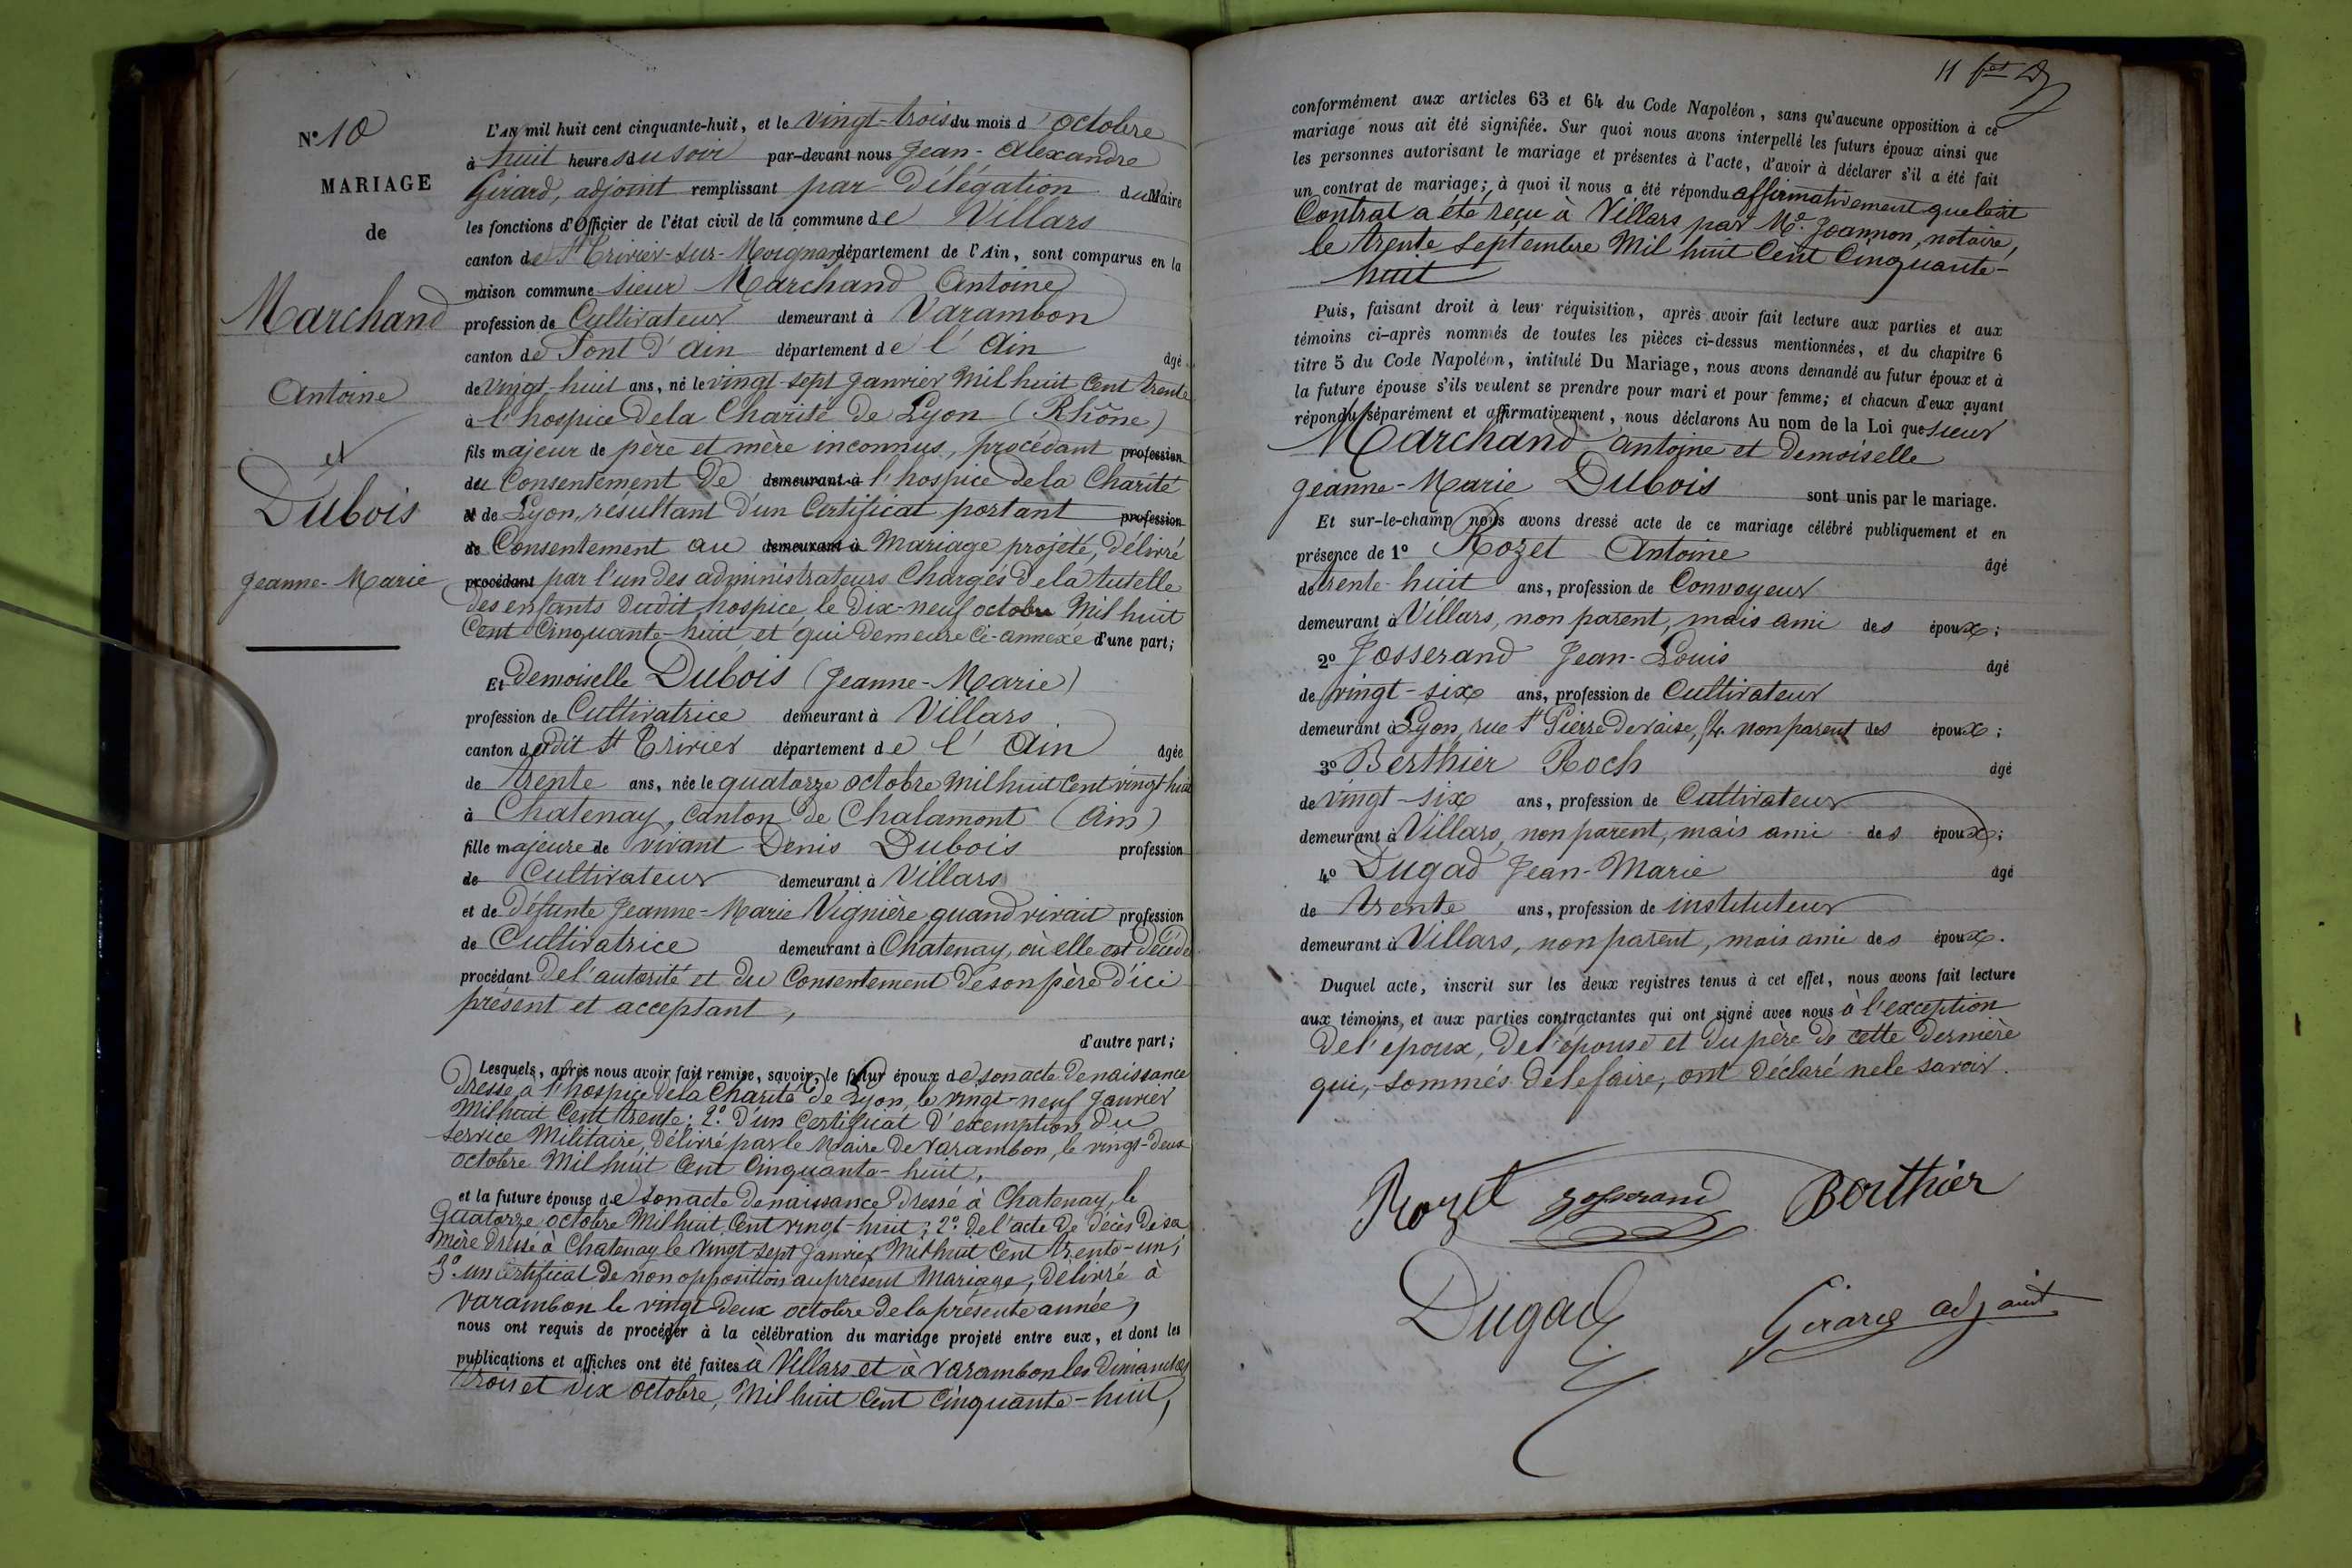 N° 10
MARIAGE
de
Marchand
Antoine
et
Dubois
Jeanne-Marie
L'AN mil huit cent cinquante-huit, et le vingt-trois du mois d'octobre
à huit heures du soir par-devant nous Jean-Alexandre
Girard, adjoint remplissant par Délégation du Maire
les fonctions d'Officier de l'état civil de la commune de Villars
canton de St Trivier-sur-Moignans département de l'Ain, sont comparus en la
maison commune sieur Marchand Antoine
profession de Cultivateur demeurant à Varambon
canton de Pont d'Ain département de l'Ain âgé
de vingt-huit ans, né le vingt-sept Janvier Mil huit cent trente
à l'hospice de la Charité de Lyon (Rhône)
fils majeur de père et mère inconnus, procédant profession
du Consentement de demeurant à l'hospice de la Charité
et de Lyon, résultant d'un Certificat portant profession
de Consentement au demeurant à Mariage projeté, délivré
procédant par l'un des administrateurs Chargés de la tutelle
des enfants dudit hospice, le Dix-neuf octobre Mil huit
Cent Cinquante-huit et qui demeure Ci-annexé d'une part;
Et demoiselle Dubois (Jeanne-Marie)
profession de Cultivatrice demeurant à Villars
canton dudit St Trivier département de l'Ain âgée
de trente ans, née le quatorze octobre Mil huit Cent vingt-huit
à Chatenay, Canton de Chalamont (Ain)
fille majeure de vivant Denis Dubois profession
de Cultivateur demeurant à Villars
et de défunte Jeanne-Marie Vignière quand vivait profession
de Cultivatrice demeurant à Chatenay, où elle est décédée
procédant de l'autorité et du Consentement de son père d'ici
présent et acceptant,
d'autre part;
Lesquels, après nous avoir fait remise, savoir, le futur époux de son acte de naissance
dressé à l'hospice de la Charité de Lyon, le vingt-neuf Janvier
Mil huit Cent trente; 2° d'un Certificat d'exemption du
service Militaire, délivré par le Maire de Varambon, le vingt-deux
octobre Mil huit Cent Cinquante-huit,
et la future épouse de son acte de naissance dressé à Chatenay, le
Quatorze octobre Mil huit Cent vingt-huit; 2° de l'acte de décès de sa
mère dressé à Chatenay le vingt-sept Janvier Mil huit Cent trente-un;
3° un Certificat de non opposition au présent Mariage, délivré à
Varambon le vingt-deux octobre de la présente année,
nous ont requis de procéder à la célébration du mariage projeté entre eux, et dont les
publications et affiches ont été faites à Villars et à Varambon les dimanches
trois et dix octobre, Mil huit Cent Cinquante-huit,
11
conformément aux articles 63 et 64 du Code Napoléon, sans qu'aucune opposition à ce
mariage nous ait été signifiée. Sur quoi nous avons interpellé les futurs époux ainsi que
les personnes autorisant le mariage et présentes à l'acte, d'avoir à déclarer s'il a été fait
un contrat de mariage; à quoi il nous a été répondu affirmativement que ledit
Contrat a été reçu à Villars par Me. Joannon, notaire,
le trente septembre Mil huit Cent Cinquante-
huit
Puis, faisant droit à leur réquisition, après avoir fait lecture aux parties et aux
témoins ci-après nommés de toutes les pièces ci-dessus mentionnées, et du chapitre 6
titre 5 du Code Napoléon, intitulé Du Mariage, nous avons demandé au futur époux et à
la future épouse s'ils veulent se prendre pour mari et pour femme; et chacun d'eux ayant
répondu séparément et affirmativement, nous déclarons Au nom de la Loi que sieur
Marchand Antoine et Demoiselle
Jeanne-Marie Dubois sont unis par le mariage.
Et sur-le-champ nous avons dressé acte de ce mariage célébré publiquement et en
présence de 1° Rozet Antoine âgé
de trente-huit ans, profession de Convoyeur
demeurant à Villars, non parent, mais ami des époux;
2° Josserand Jean-Louis âgé
de vingt-six ans, profession de Cultivateur
demeurant à Lyon, rue St Pierre de Vaise, non parent des époux;
3° Berthier Roch âgé
de vingt-six ans, profession de Cultivateur
demeurant à Villars, non parent, mais ami des époux;
4° Dugad Jean-Marie âgé
de trente ans, profession de instituteur
demeurant à Villars, non parent, mais ami des époux.
Duquel acte, inscrit sur les deux registres tenus à cet effet, nous avons fait lecture
aux témoins, et aux parties contractantes qui ont signé avec nous à l'exception
de l'époux, de l'épouse et du père de cette dernière
qui, sommés de le faire, ont déclaré ne le savoir.
Rozet Josserand Berthier
Dugad Girard adjoint